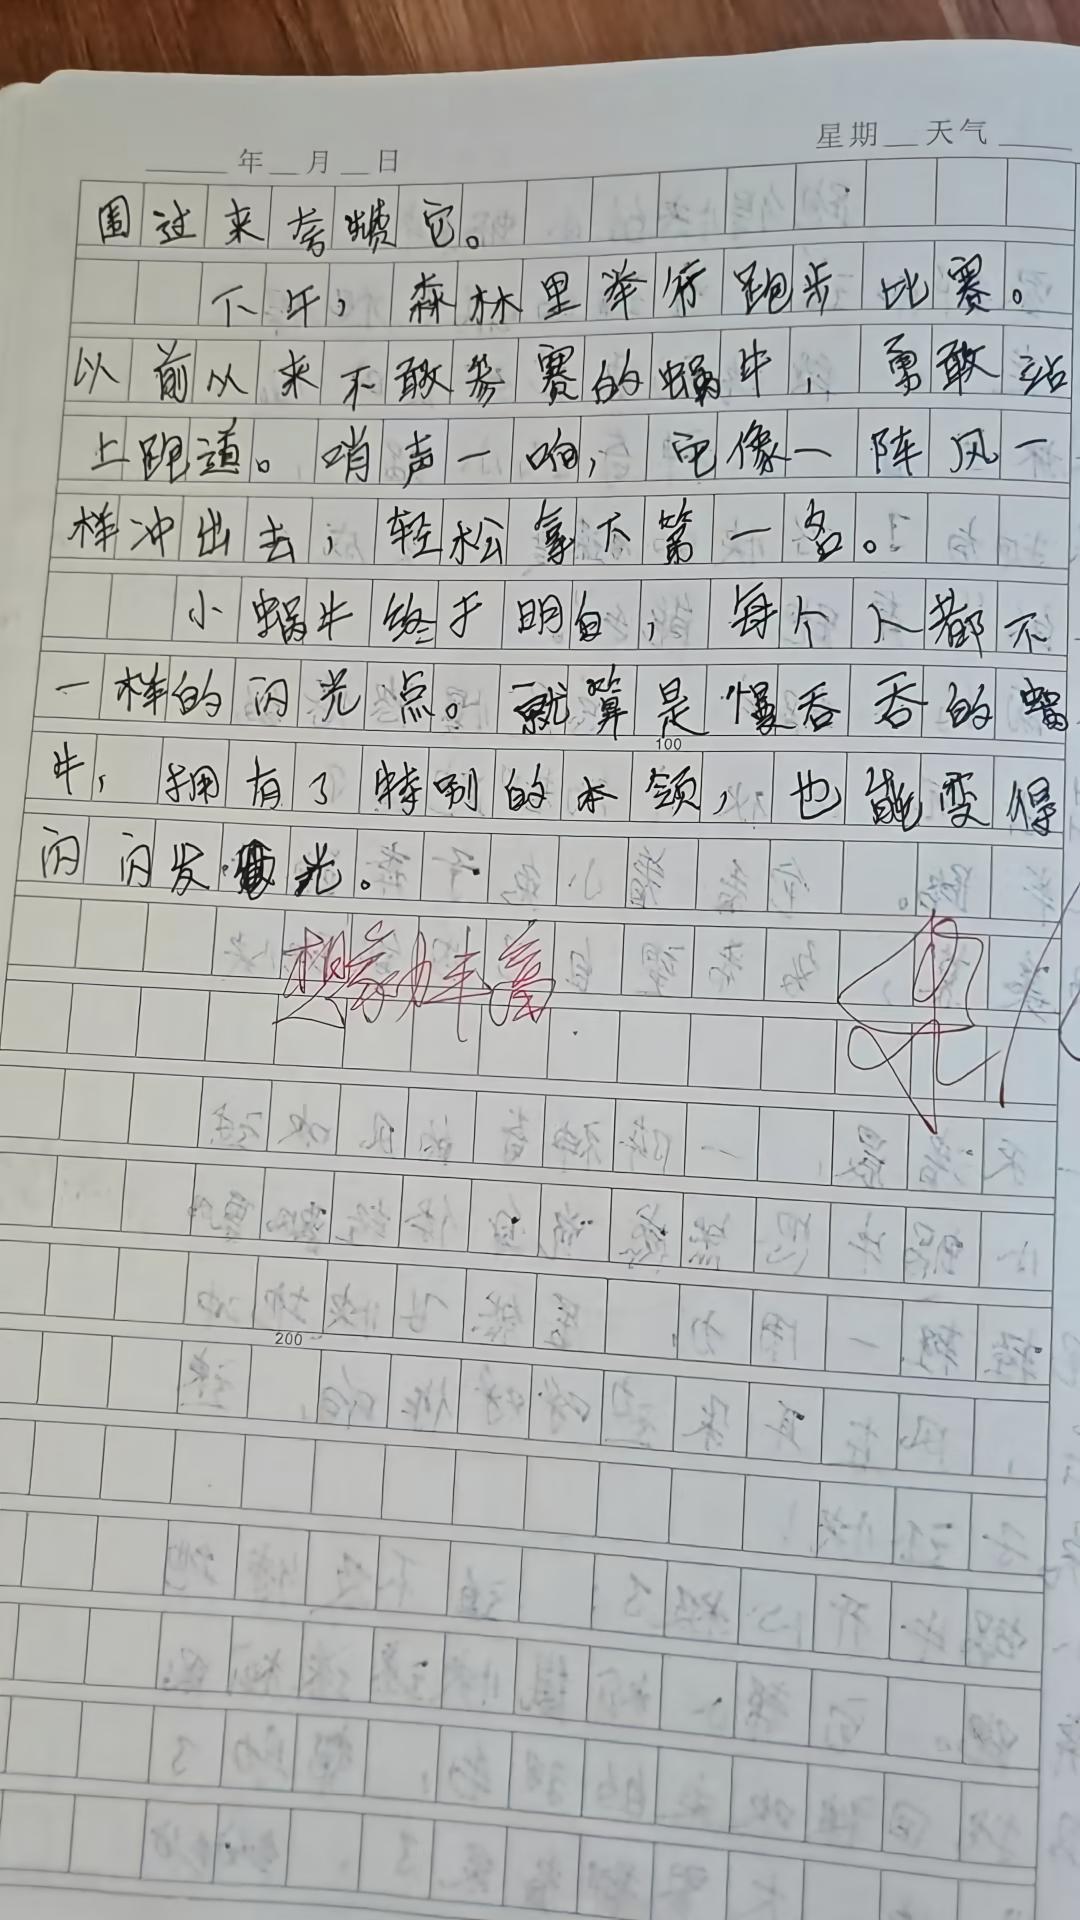 星期__天气____
____年__月__日
围过来夸赞它。
下午，森林里举行跑步比赛。
以前从来不敢参赛的蜗牛，勇敢站
上跑道。哨声一响，它像一阵风一
样冲出去，轻松拿下第一名。
小蜗牛终于明白，每个人都不
一样的闪光点。就算是慢吞吞的蜗
100
牛，拥有了特别的本领，也能变得
闪闪发光。
想象力丰富
200